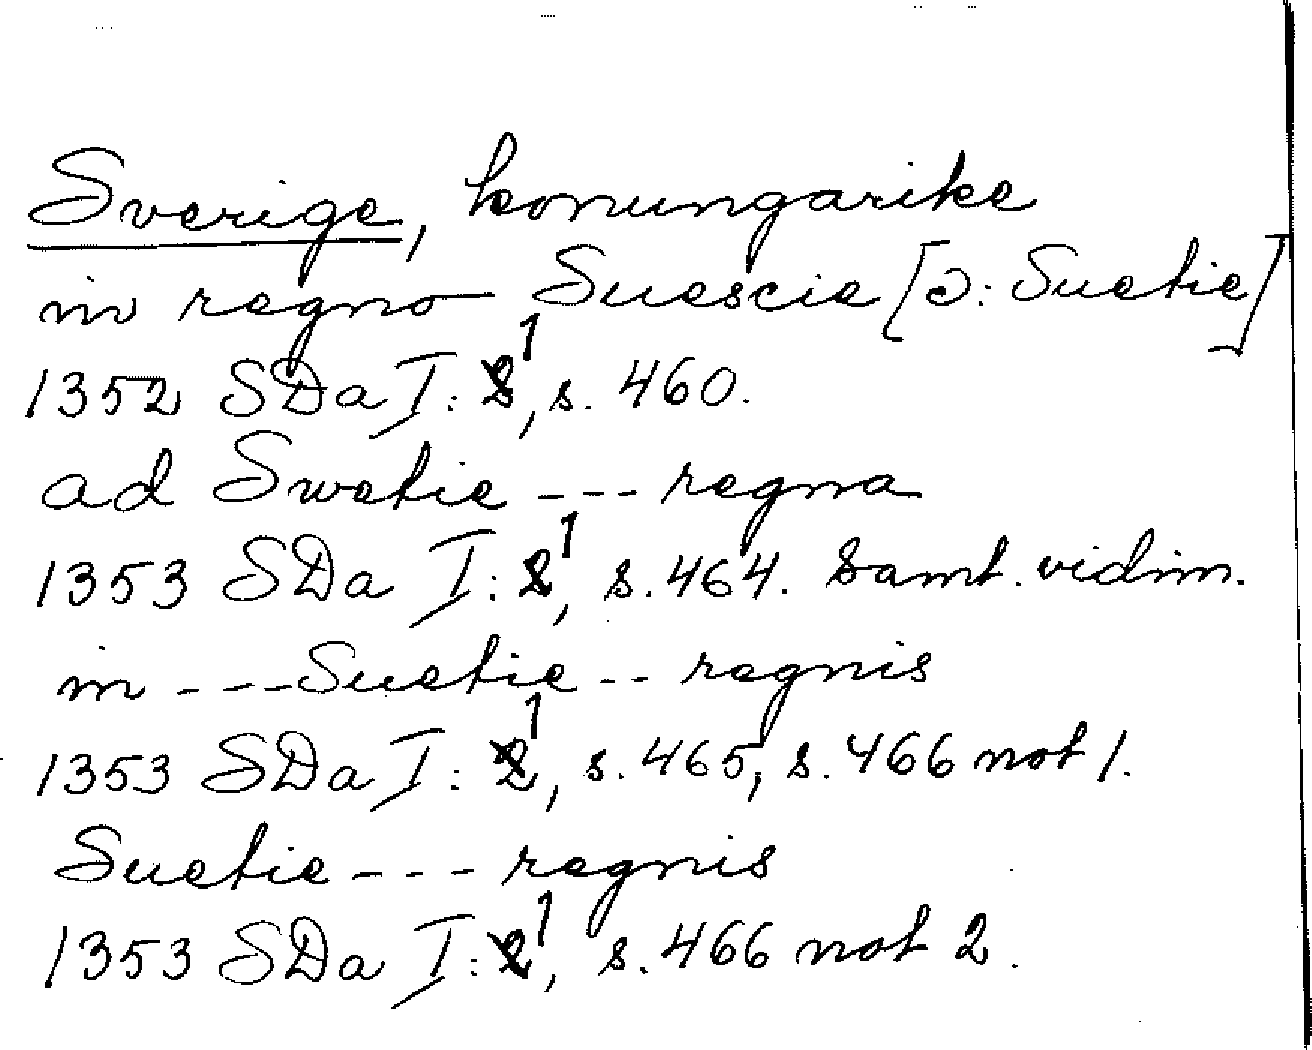 Sverige, konungarike
in regno Suescie [ɔ: Suetie]
1352 SDa I: 1, s. 460.
ad Swetie --- regna
1353 SDa I: 1, s. 464. Samt. vidim.
in --- Suetie -- regnis
1353 SDa I: 1, s. 465, s. 466 not 1.
Suetie --- regnis
1353 SDa I: 1, s. 466 not 2.